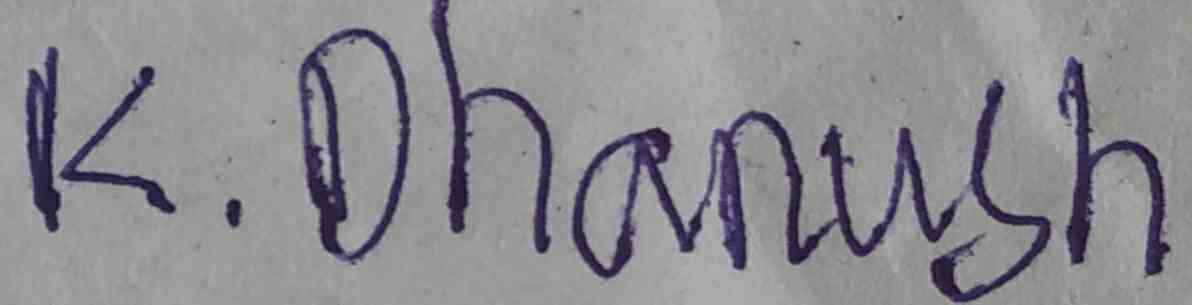 K. Dhanush